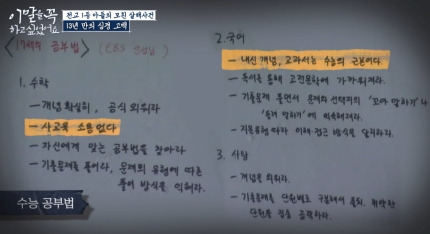 이 말을 꼭
하고 싶었어요
전교 1등 아들의 모친 살해사건
13년 만의 심경 고백
공부법> (EBS
1. 수학
- 개념 확실히, 공식 외워라
- 사교육 소용 없다
- 자신에게 맞는 공부법을 찾아라
- 기출문제를 풀어라, 문제의 유형에 따른
풀이 방식을 익혀라.
2. 국어
- 내신 개념, 교과서는 수능의 근본이다.
- 독서를 통해 고전문학에 가까워져라.
- 기출문제 풀면서 문제와 선택지의 '꼬아 말하기'나
'돌려 말하기'에 익숙해져라.
- 지문유형따라 이해·접근 방식을 달리하라.
3. 사탐
- 개념을 외워라.
- 기출문제를 단원별로 구분해서 풀되, 취약한
단원을 집중 공략하라.
수능 공부법